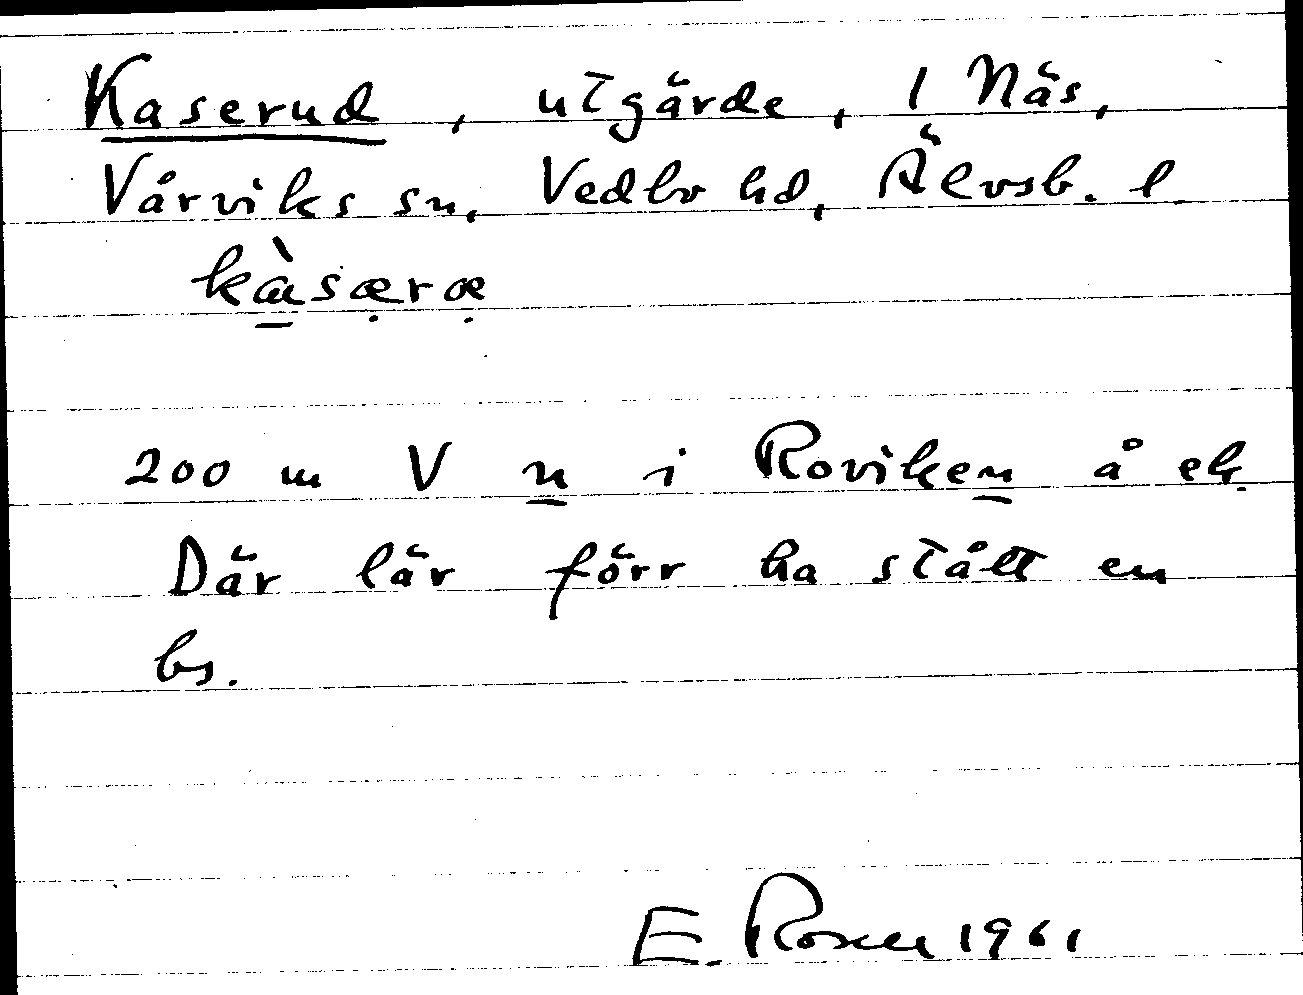 Kaserud, utgärde, 1 Näs,
Vårviks sn, Vedbo hd, Älvsb. l
kɑ̀særæ
200 m V n i Roviken å ek.
Där lär förr ha stått en
bs.
E. 1961